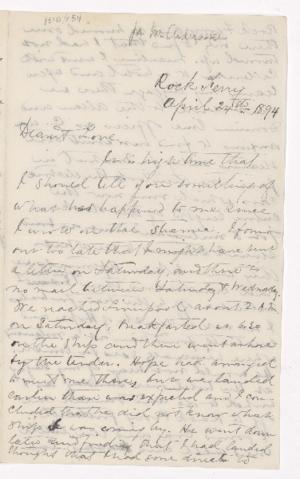 Rock Ferry
April 24th 1894
Dearest Love
It is high time that
I should tell you something of
what has happened to me since
I wrote on that steamer. I found
out too late that I might have sent
a letter on Saturday, and there is
no mail between Saturday & Wednesday.
We reached Liverpool about 2 A.M.
on Saturday, Breakfasted as usual
on the ship and then went ashore
by the tender. Hope had arranged
to meet me there, but we landed
earlier than was expected and I con-
cluded that he did not know what
ship I was coming by. He went down
later and finding that I had landed
thought that I had gone direct to